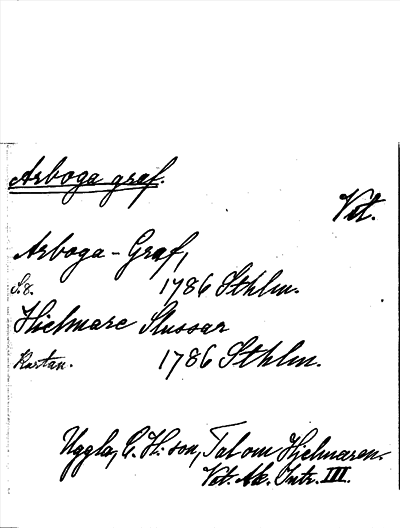 Arboga graf.
Vet.
Arboga-Graf,
S. 8. 1786 Sthlm.
Hielmare Slussar
Kartan. 1786 Sthlm.
Uggla, C. H:son, Tal om Hjelmaren.
Vet. Ak. Intr. III.